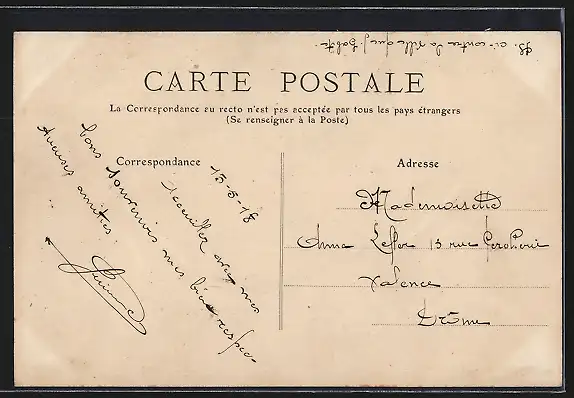 PS. ci-contre la ville que j'habite.
CARTE POSTALE
La Correspondance au recto n'est pas acceptée par tous les pays étrangers
(Se renseigner à la Poste)
Correspondance
Adresse
15-5-18
Accueillez avec mes
bons souvenirs mes bien respec-
tueuses amitiés.
Mademoiselle
Anna 15 rue
Valence
Drôme